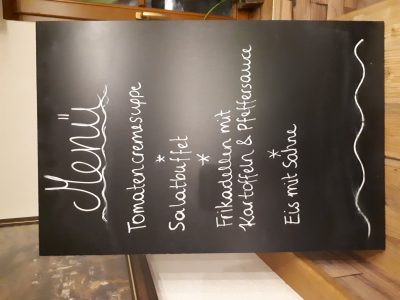 Menü
Tomatencremesuppe
*
Salatbuffet
*
Frikadellen mit
Kartoffeln & Pfeffersauce
*
Eis mit Sahne